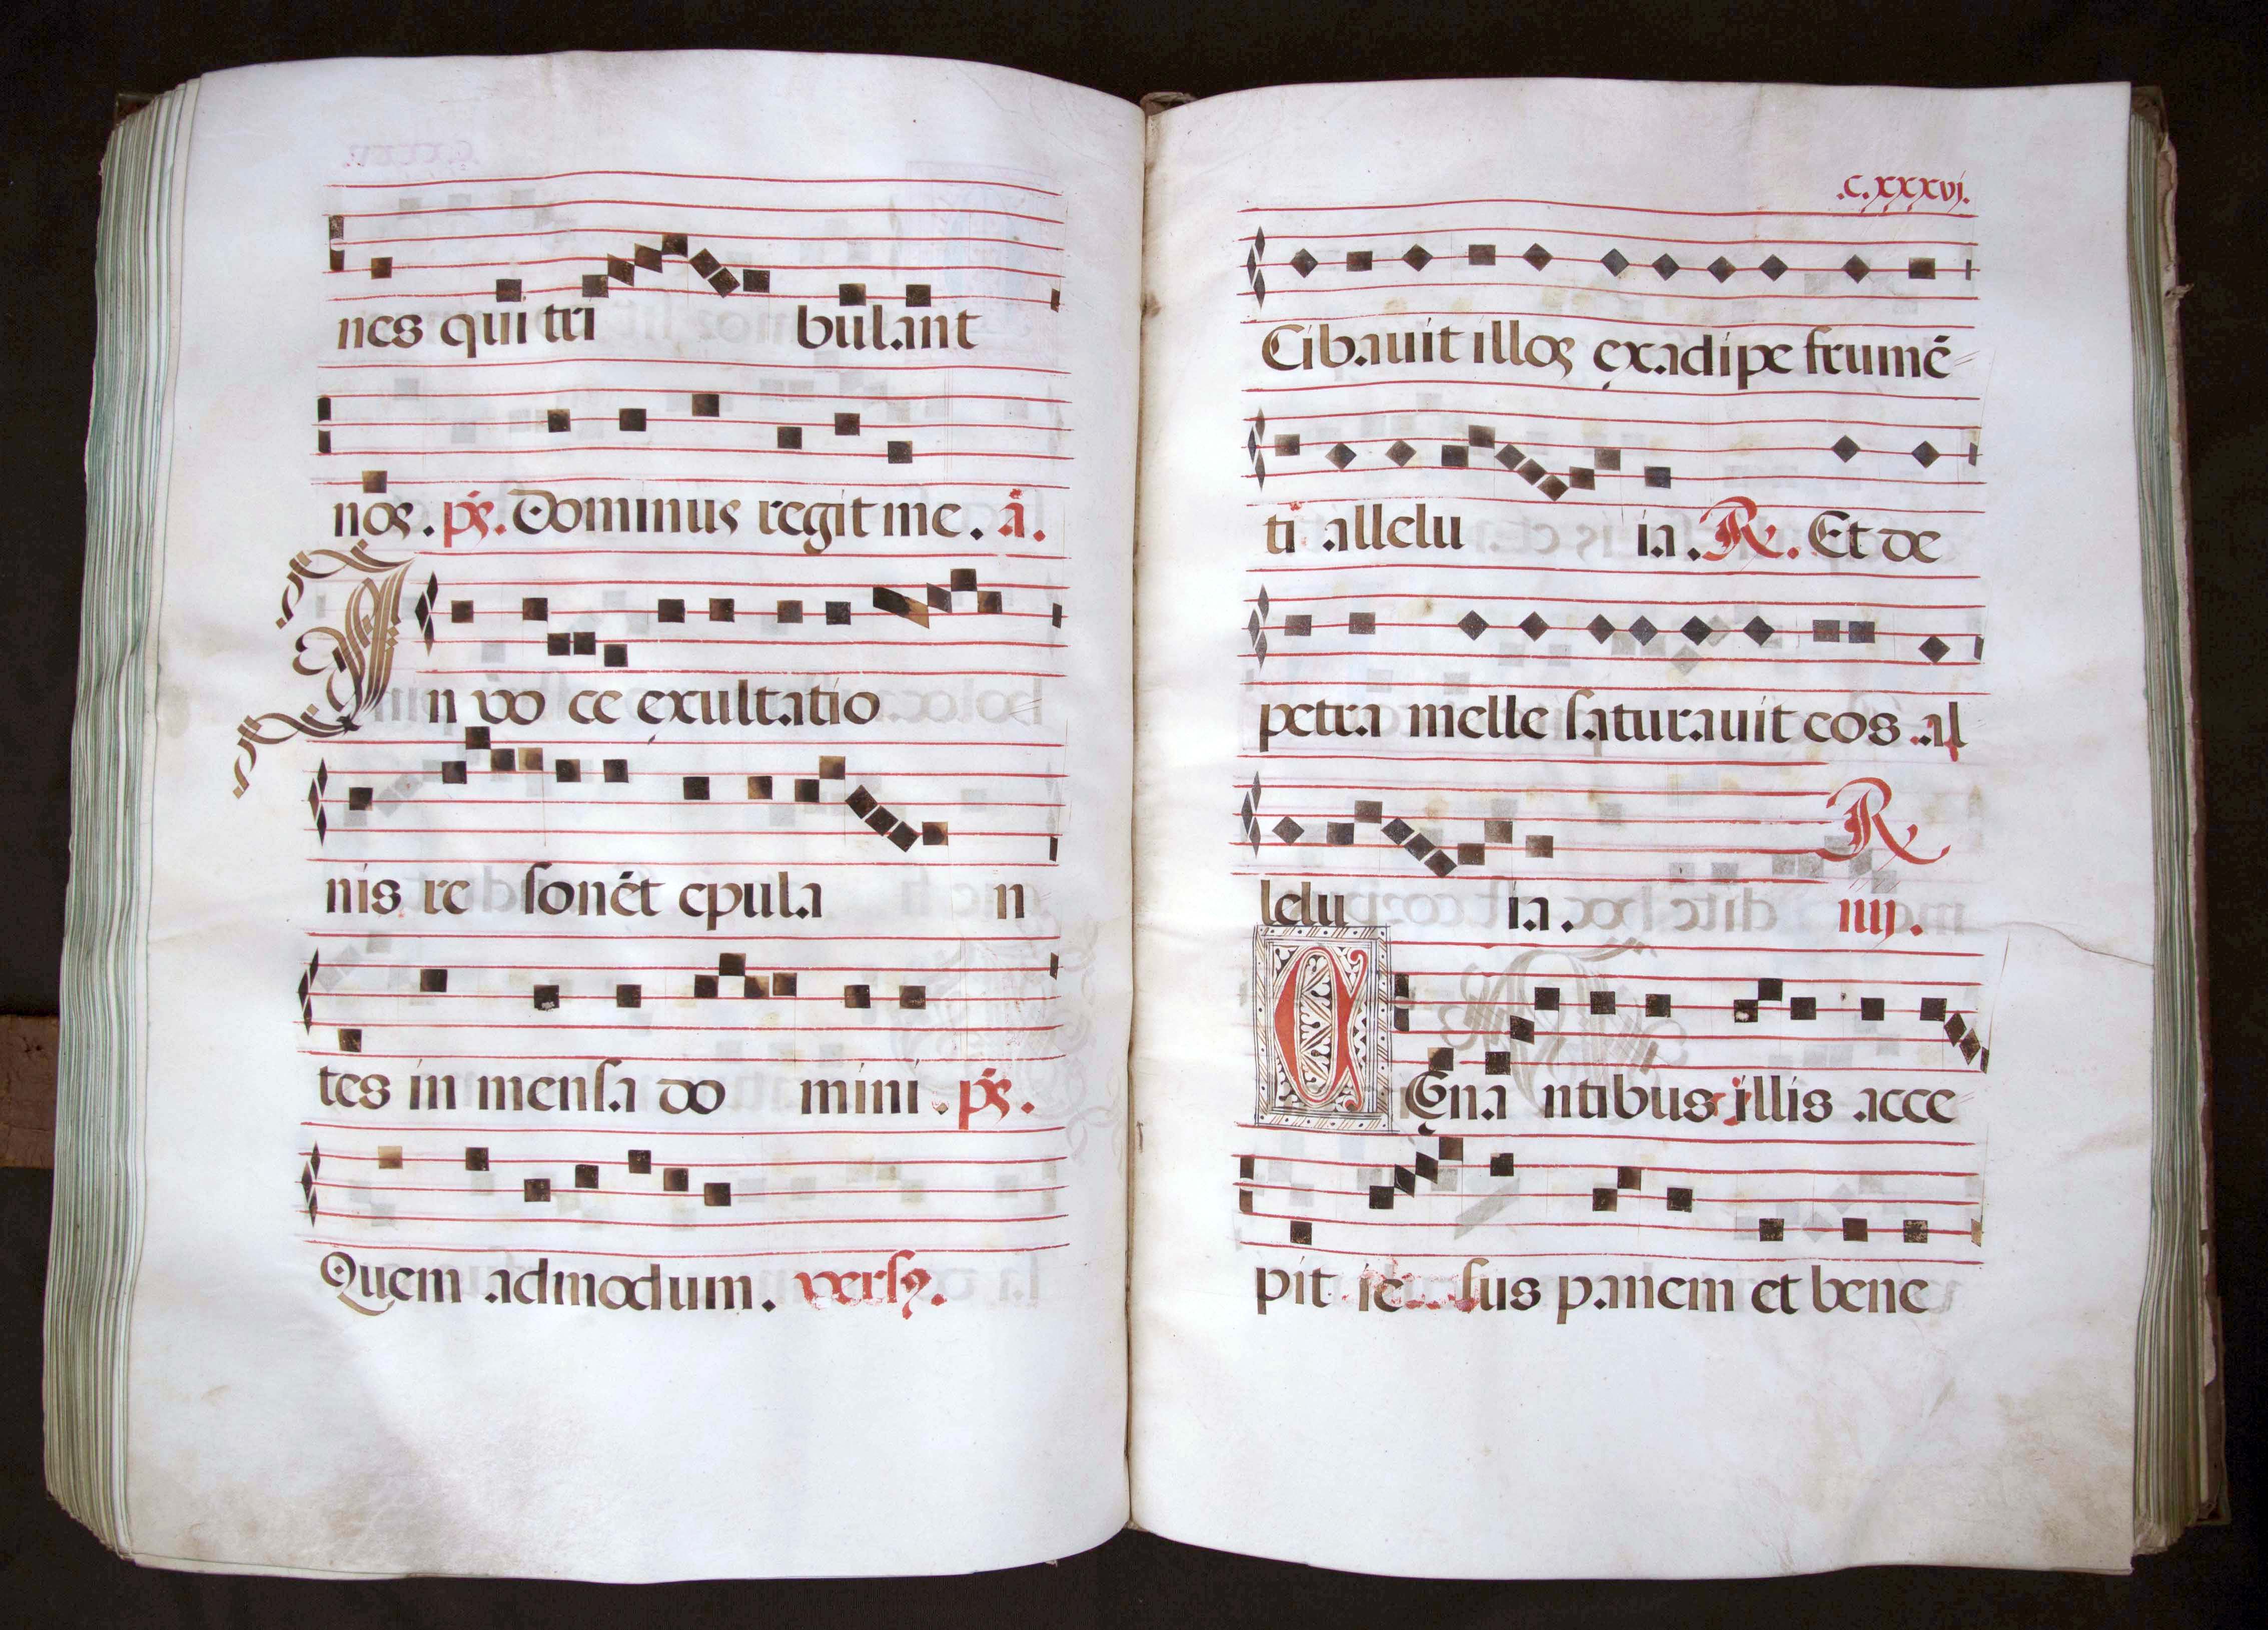 nes qui tri bulant
nos. ps. Dominus regit me. a.
In vo ce exultatio
nis re sonēt epula n
tes in mensa do mini. ps.
Quem admodum. vers9.
.c.xxxvj.
Cibauit illos ex adipe frumē-
ti allelu ia. R. Et de
petra melle saturauit eos al
lelu ia. R
iiij.
CEna ntibus illis acce-
pit ie sus panem et bene